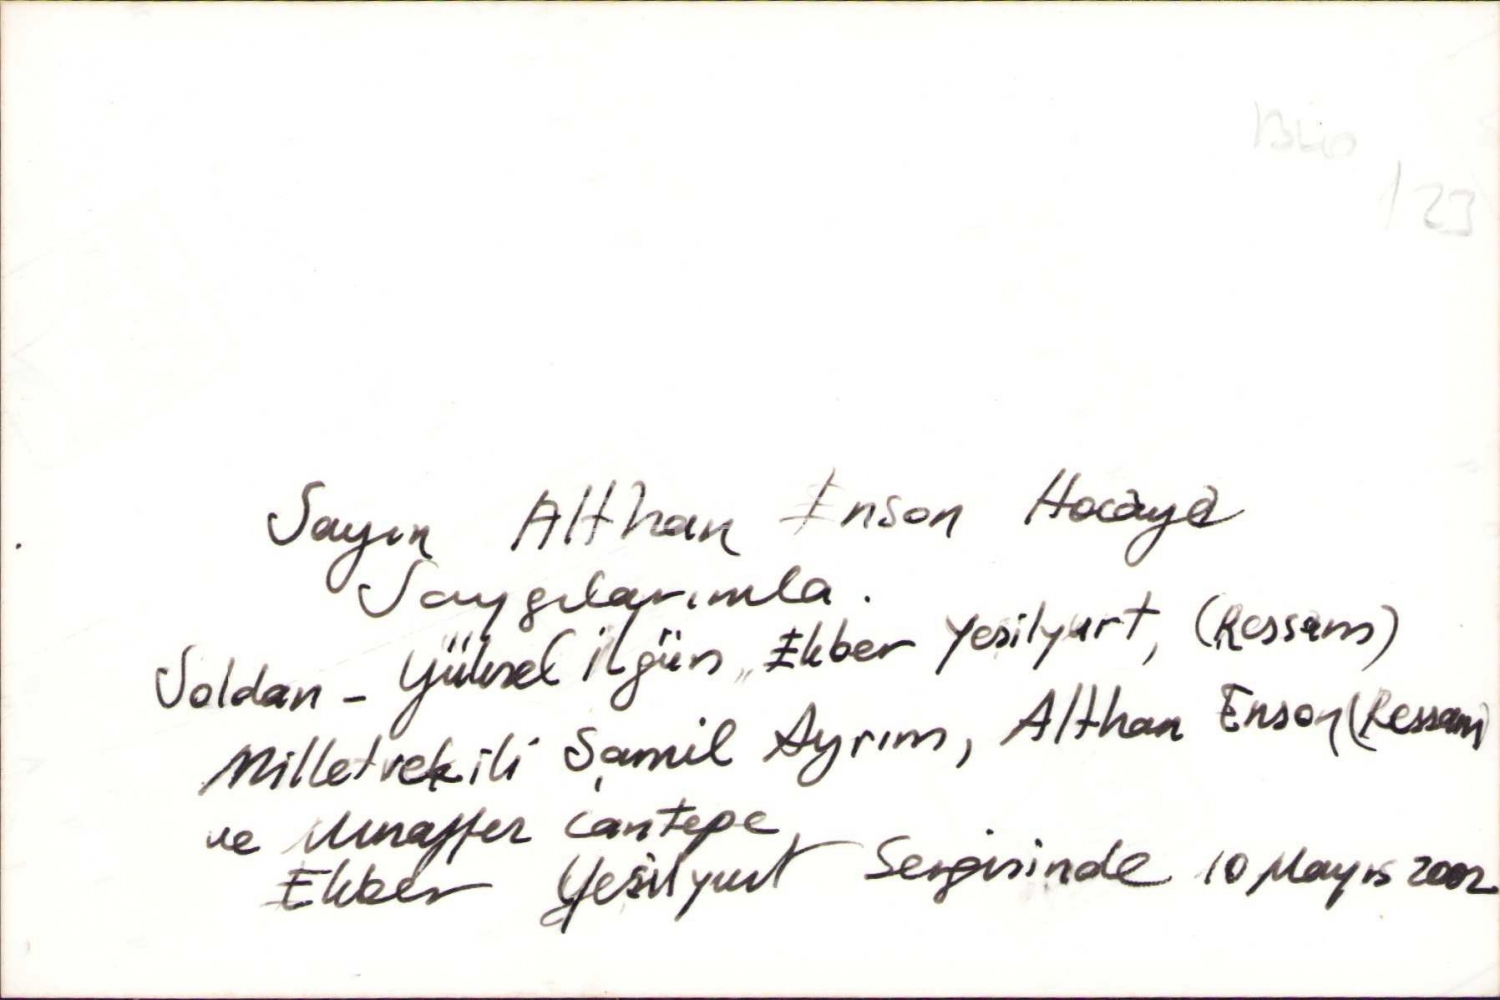 /23
Sayın Althan Enson Hocaya
Saygılarımla.
Soldan - Yüksel ilgün, Ekber Yeşilyurt, (Ressam)
Milletvekili Şamil Ayrım, Althan Enson (Ressam)
ve Muzaffer Cantepe
Ekber Yeşilyurt Sergisinde 10 Mayıs 2002